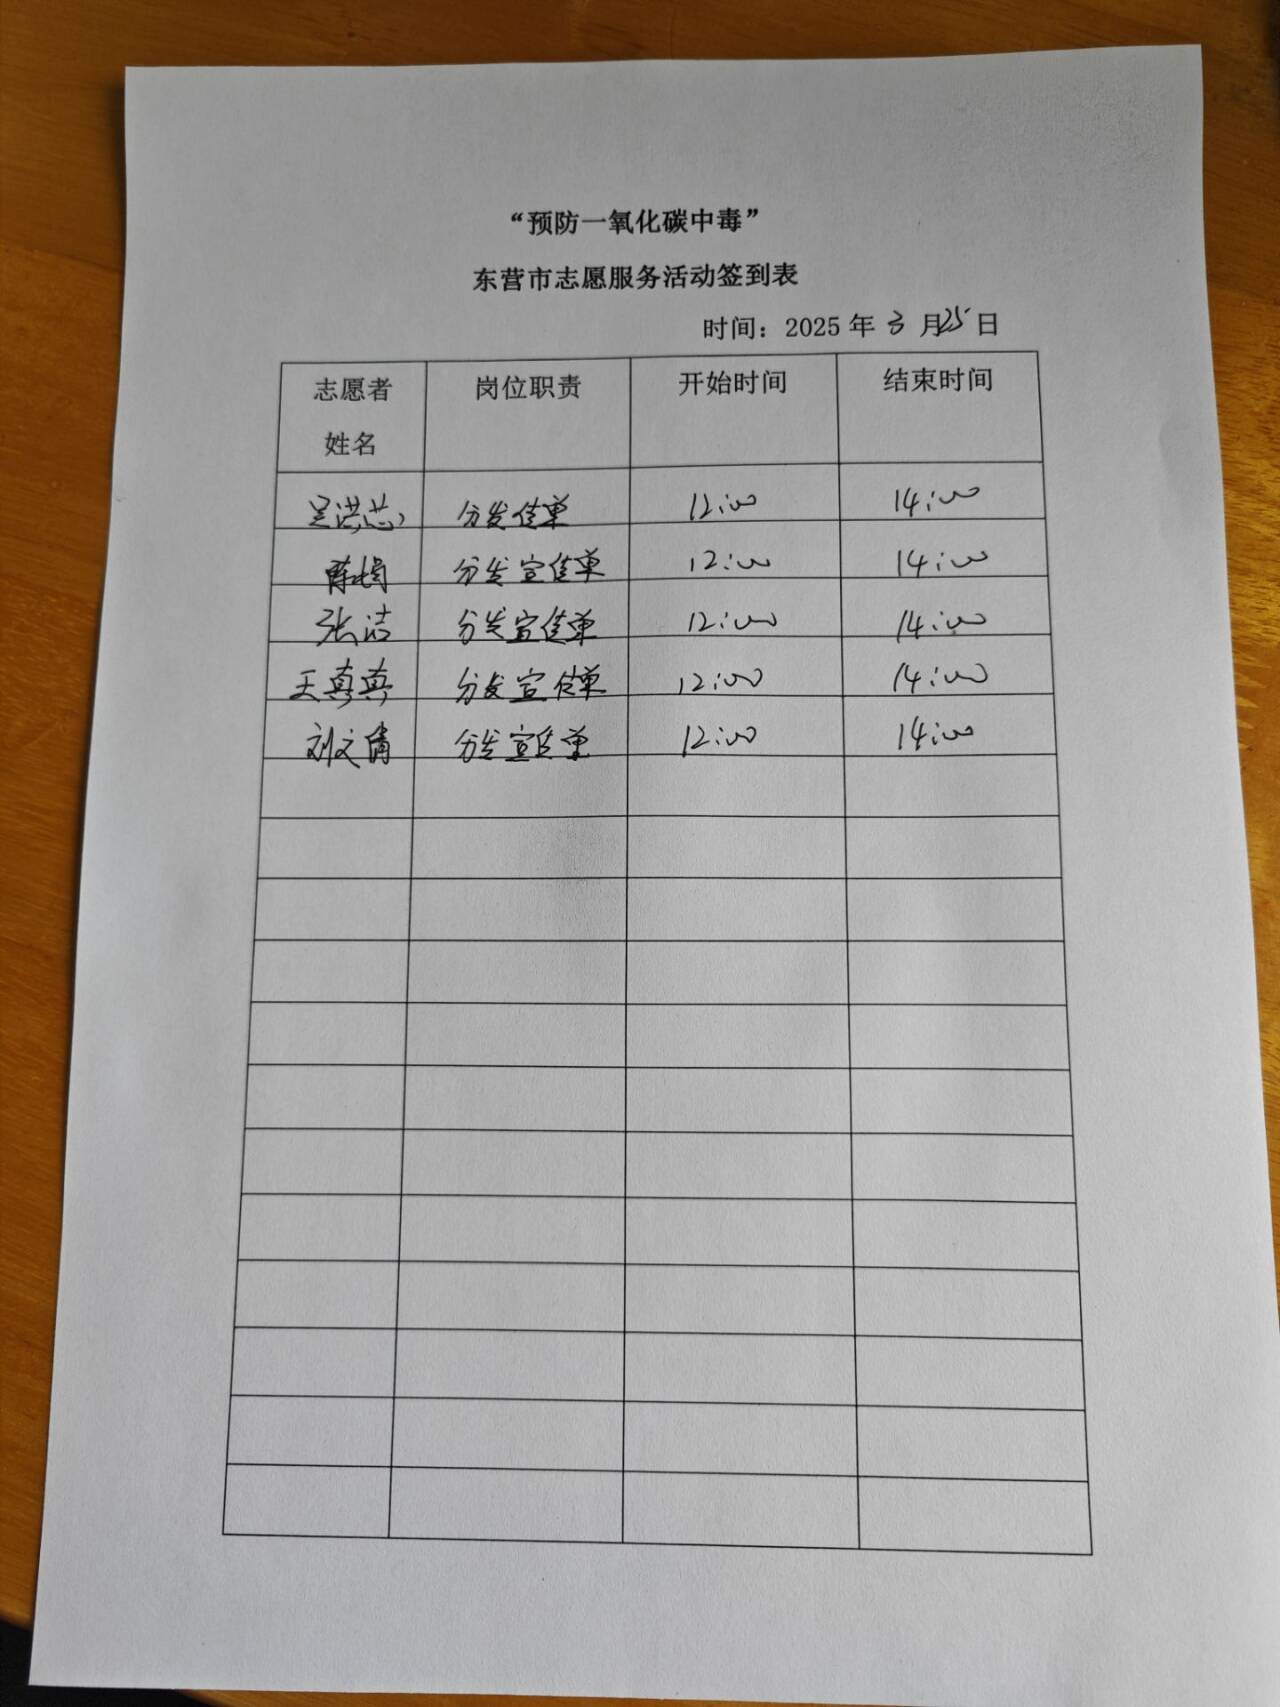 “预防一氧化碳中毒”
东营市志愿服务活动签到表
时间：2025 年 3 月 25 日
志愿者姓名 岗位职责 开始时间 结束时间
吴洪芯 分发传单 12:00 14:00
陈娟 分发宣传单 12:00 14:00
张洁 分发宣传单 12:00 14:00
王真真 分发宣传单 12:00 14:00
刘文倩 分发宣传单 12:00 14:00